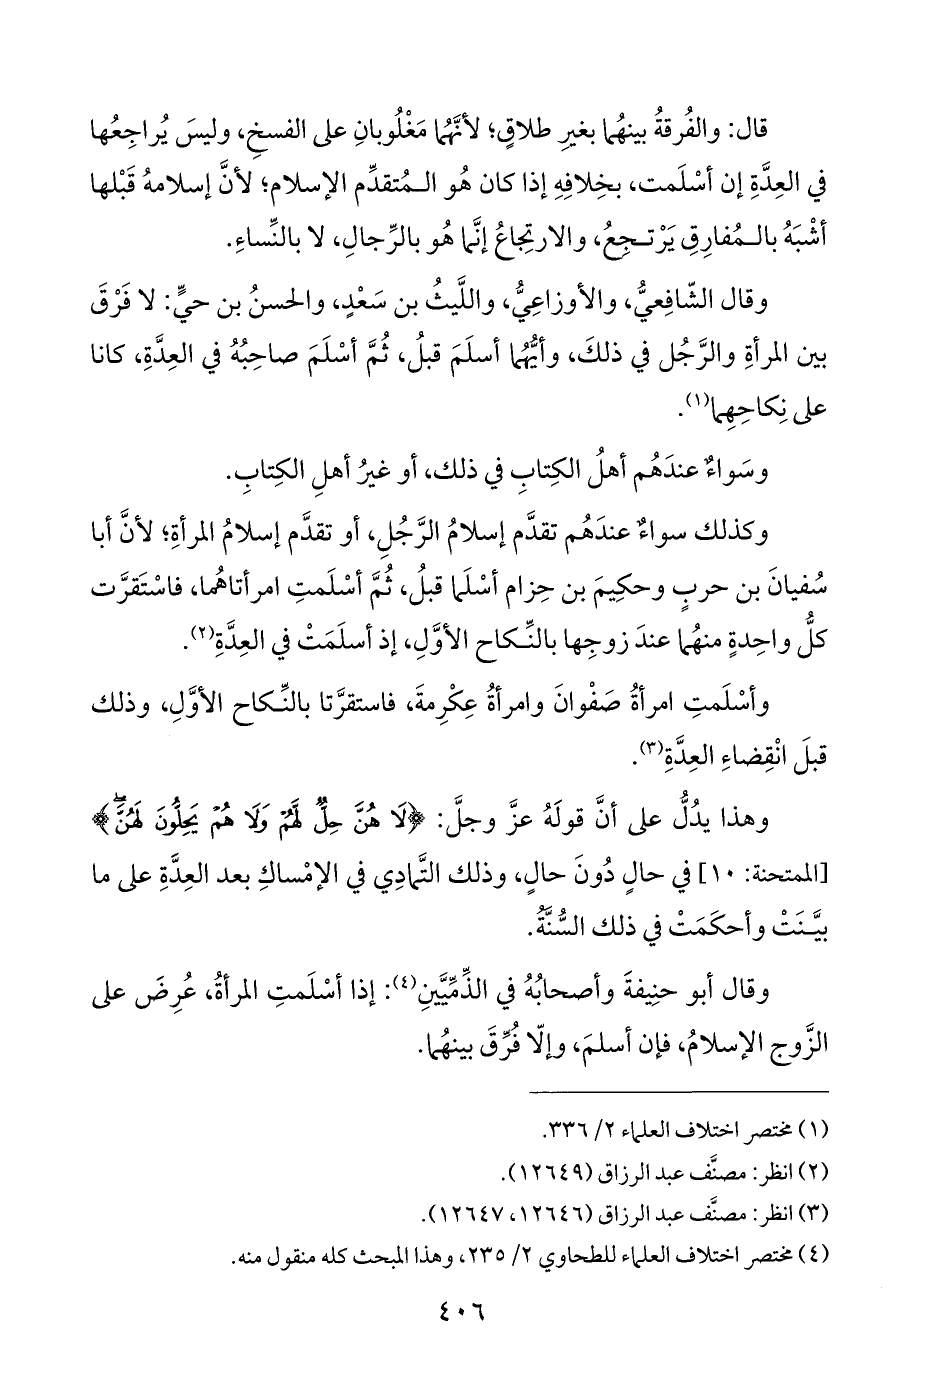 قال: والفُرقةُ بينهُما بغيرِ طلاقٍ؛ لأنَّهُما مَغْلُوبانِ على الفسخِ، وليسَ يُراجِعُها
في العِدَّةِ إن أسْلَمت، بخِلافِهِ إذا كان هُو الـمُتقدِّم الإسلام؛ لأنَّ إسلامهُ قَبْلها
أشْبَهُ بالـمُفارِقِ يَرْتـجِعُ، والارتِجاعُ إنَّما هُو بالرِّجالِ، لا بالنِّساءِ.
وقال الشّافِعيُّ، والأوزاعِيُّ، واللَّيثُ بن سَعْدٍ، والحسنُ بن حيٍّ: لا فَرْقَ
بين المرأةِ والرَّجُل في ذلكَ، وأيُّهُما أسلَمَ قبلُ، ثُمَّ أسْلَمَ صاحِبُهُ في العِدَّةِ، كانا
على نِكاحِهِما(١).
وسَواءٌ عندَهُم أهلُ الكِتابِ في ذلك، أو غيرُ أهلِ الكِتابِ.
وكذلك سواءٌ عندَهُم تقدَّم إسلامُ الرَّجُلِ، أو تقدَّم إسلامُ المرأةِ؛ لأنَّ أبا
سُفيانَ بن حربٍ وحكِيمَ بن حِزام أسْلَما قبلُ، ثُمَّ أسْلَمتِ امرأتاهُما، فاسْتَقرَّت
كلُّ واحِدةٍ منهُما عندَ زوجِها بالنِّكاح الأوَّلِ، إذ أسلَمَتْ في العِدَّةِ(٢).
وأسْلَمتِ امرأةُ صَفْوانَ وامرأةُ عِكْرِمةَ، فاستقرَّتا بالنِّكاح الأوَّلِ، وذلك
قبلَ انْقِضاءِ العِدَّةِ(٣).
وهذا يدُلُّ على أنَّ قولَهُ عزَّ وجلَّ: ﴿لَا هُنَّ حِلٌّ لَّهُمْ وَلَا هُمْ يَحِلُّونَ لَهُنَّ﴾
[الممتحنة: ١٠] في حالٍ دُونَ حالٍ، وذلك التَّمادِي في الإمْساكِ بعد العِدَّةِ على ما
بيَّـنَتْ وأحكَمَتْ في ذلك السُّنَّةُ.
وقال أبو حنِيفةَ وأصحابُهُ في الذِّمِّيَّينِ(٤): إذا أسْلَمتِ المرأةُ، عُرِضَ على
الزَّوج الإسلامُ، فإن أسلمَ، وإلّا فُرِّقَ بينهُما.
(١) مختصر اختلاف العلماء ٢/ ٣٣٦.
(٢) انظر: مصنَّف عبد الرزاق (١٢٦٤٩).
(٣) انظر: مصنَّف عبد الرزاق (١٢٦٤٦، ١٢٦٤٧).
(٤) مختصر اختلاف العلماء للطحاوي ٢/ ٢٣٥، وهذا المبحث كله منقول منه.
٤٠٦